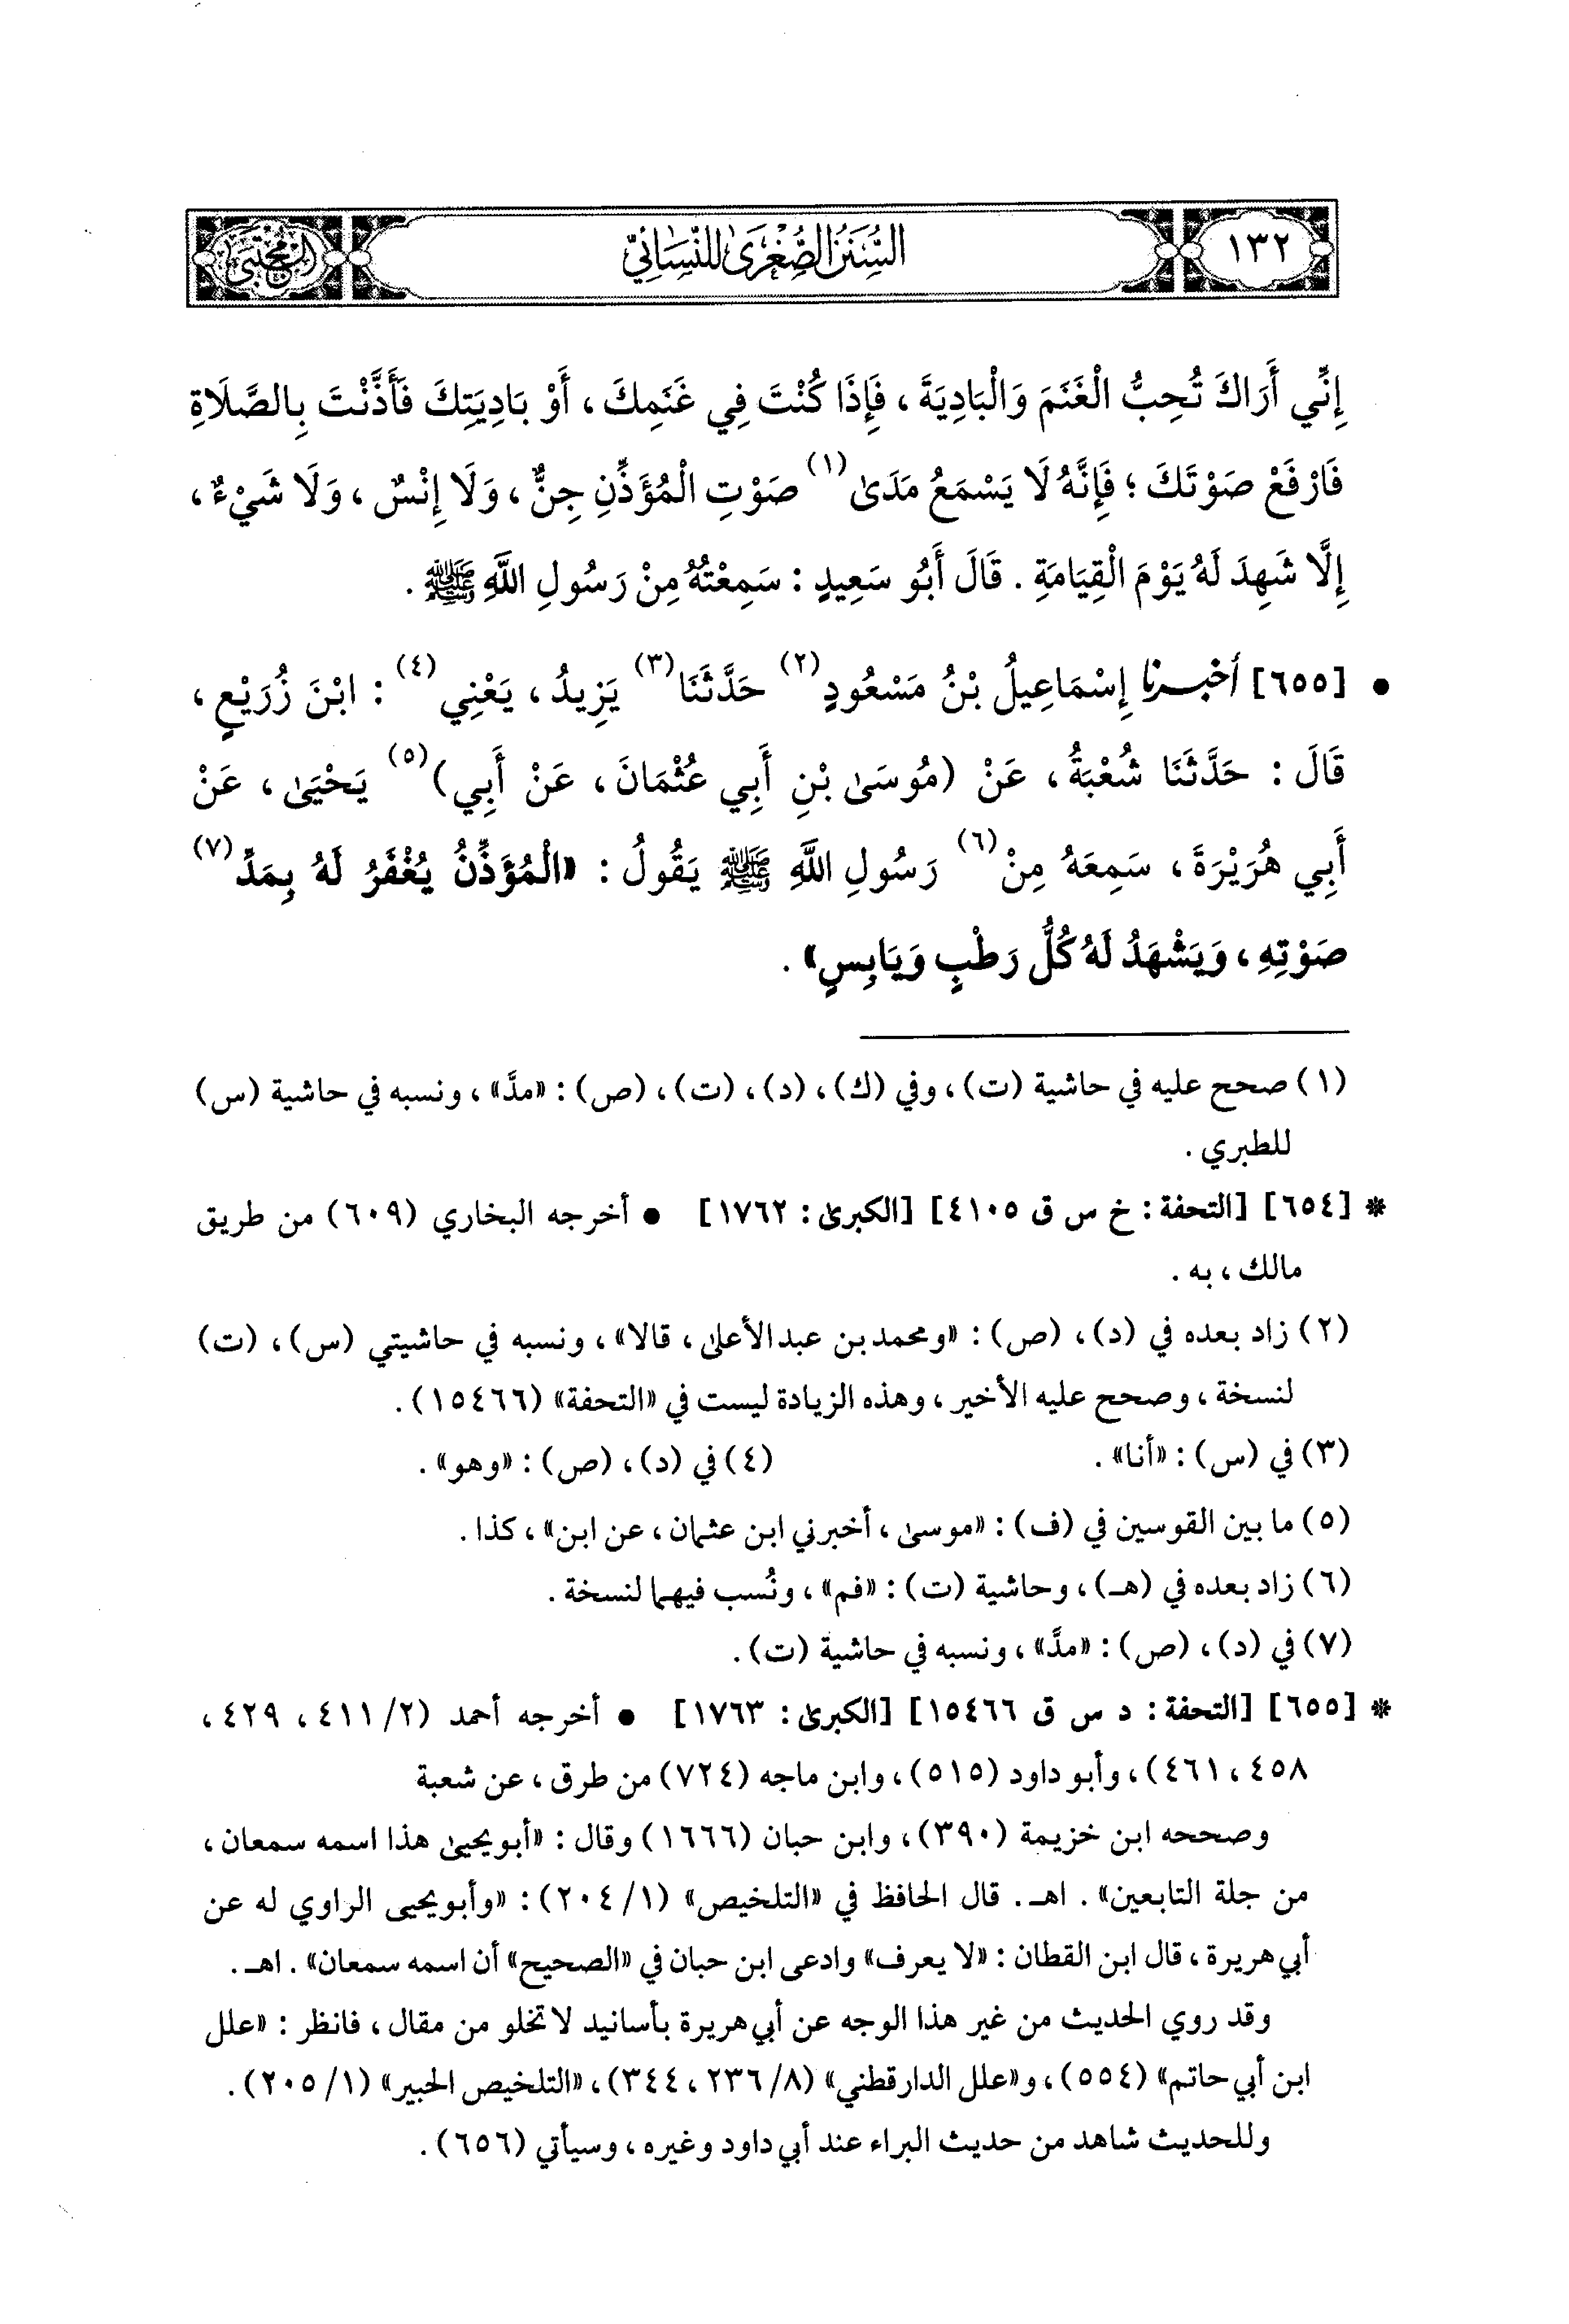 ١٣٢
السُّنَنُ الصُّغْرَىٰ لِلنَّسَائِيِّ
المجتبى
إِنِّي أَرَاكَ تُحِبُّ الْغَنَمَ وَالْبَادِيَةَ ، فَإِذَا كُنْتَ فِي غَنَمِكَ ، أَوْ بَادِيَتِكَ فَأَذَّنْتَ بِالصَّلَاةِ
فَارْفَعْ صَوْتَكَ ؛ فَإِنَّهُ لَا يَسْمَعُ مَدَىٰ (١) صَوْتِ الْمُؤَذِّنِ جِنٌّ ، وَلَا إِنْسٌ ، وَلَا شَيْءٌ ،
إِلَّا شَهِدَ لَهُ يَوْمَ الْقِيَامَةِ . قَالَ أَبُو سَعِيدٍ : سَمِعْتُهُ مِنْ رَسُولِ اللَّهِ ﷺ .
• [٦٥٥] أخبرنا إِسْمَاعِيلُ بْنُ مَسْعُودٍ (٢) حَدَّثَنَا (٣) يَزِيدُ ، يَعْنِي (٤) : ابْنَ زُرَيْعٍ ،
قَالَ : حَدَّثَنَا شُعْبَةُ ، عَنْ (مُوسَىٰ بْنِ أَبِي عُثْمَانَ ، عَنْ أَبِي) (٥) يَحْيَىٰ ، عَنْ
أَبِي هُرَيْرَةَ ، سَمِعَهُ مِنْ (٦) رَسُولِ اللَّهِ ﷺ يَقُولُ : «الْمُؤَذِّنُ يُغْفَرُ لَهُ بِمَدِّ (٧)
صَوْتِهِ ، وَيَشْهَدُ لَهُ كُلُّ رَطْبٍ وَيَابِسٍ» .
(١) صحح عليه في حاشية (ت) ، وفي (ك) ، (د) ، (ت) ، (ص) : «مدَّ» ، ونسبه في حاشية (س)
للطبري .
* [٦٥٤] [التحفة : خ س ق ٤١٠٥] [الكبرىٰ : ١٧٦٢] • أخرجه البخاري (٦٠٩) من طريق
مالك ، به .
(٢) زاد بعده في (د) ، (ص) : «ومحمد بن عبد الأعلىٰ ، قالا» ، ونسبه في حاشيتي (س) ، (ت)
لنسخة ، وصحح عليه الأخير ، وهذه الزيادة ليست في «التحفة» (١٥٤٦٦) .
(٣) في (س) : «أنا» . (٤) في (د) ، (ص) : «وهو» .
(٥) ما بين القوسين في (ف) : «موسىٰ ، أخبرني ابن عثمان ، عن ابن» ، كذا .
(٦) زاد بعده في (هـ) ، وحاشية (ت) : «فم» ، ونُسب فيهما لنسخة .
(٧) في (د) ، (ص) : «مدَّ» ، ونسبه في حاشية (ت) .
* [٦٥٥] [التحفة : د س ق ١٥٤٦٦] [الكبرىٰ : ١٧٦٣] • أخرجه أحمد (٢/ ٤١١ ، ٤٢٩ ،
٤٥٨ ، ٤٦١) ، وأبو داود (٥١٥) ، وابن ماجه (٧٢٤) من طرق ، عن شعبة
وصححه ابن خزيمة (٣٩٠) ، وابن حبان (١٦٦٦) وقال : «أبو يحيىٰ هذا اسمه سمعان ،
من جلة التابعين» . اهـ . قال الحافظ في «التلخيص» (١/ ٢٠٤) : «وأبو يحيى الراوي له عن
أبي هريرة ، قال ابن القطان : «لا يعرف» وادعى ابن حبان في «الصحيح» أن اسمه سمعان» . اهـ .
وقد روي الحديث من غير هذا الوجه عن أبي هريرة بأسانيد لا تخلو من مقال ، فانظر : «علل
ابن أبي حاتم» (٥٥٤) ، و«علل الدارقطني» (٨/ ٢٣٦ ، ٣٤٤) ، «التلخيص الحبير» (١/ ٢٠٥) .
وللحديث شاهد من حديث البراء عند أبي داود وغيره ، وسيأتي (٦٥٦) .